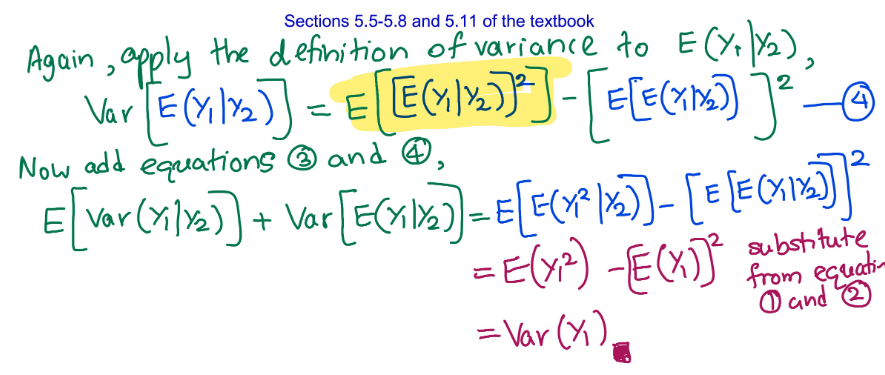 Sections 5.5-5.8 and 5.11 of the textbook
Again, apply the definition of variance to E(Y₁|Y₂),
Var[E(Y₁|Y₂)] = E[[E(Y₁|Y₂)]²] - [E[E(Y₁|Y₂)]]² — ④
Now add equations ③ and ④,
E[Var(Y₁|Y₂)] + Var[E(Y₁|Y₂)] = E[E(Y₁²|Y₂)] - [E[E(Y₁|Y₂)]]²
= E(Y₁²) - [E(Y₁)]² substitute
from equati
① and ②
= Var(Y₁).